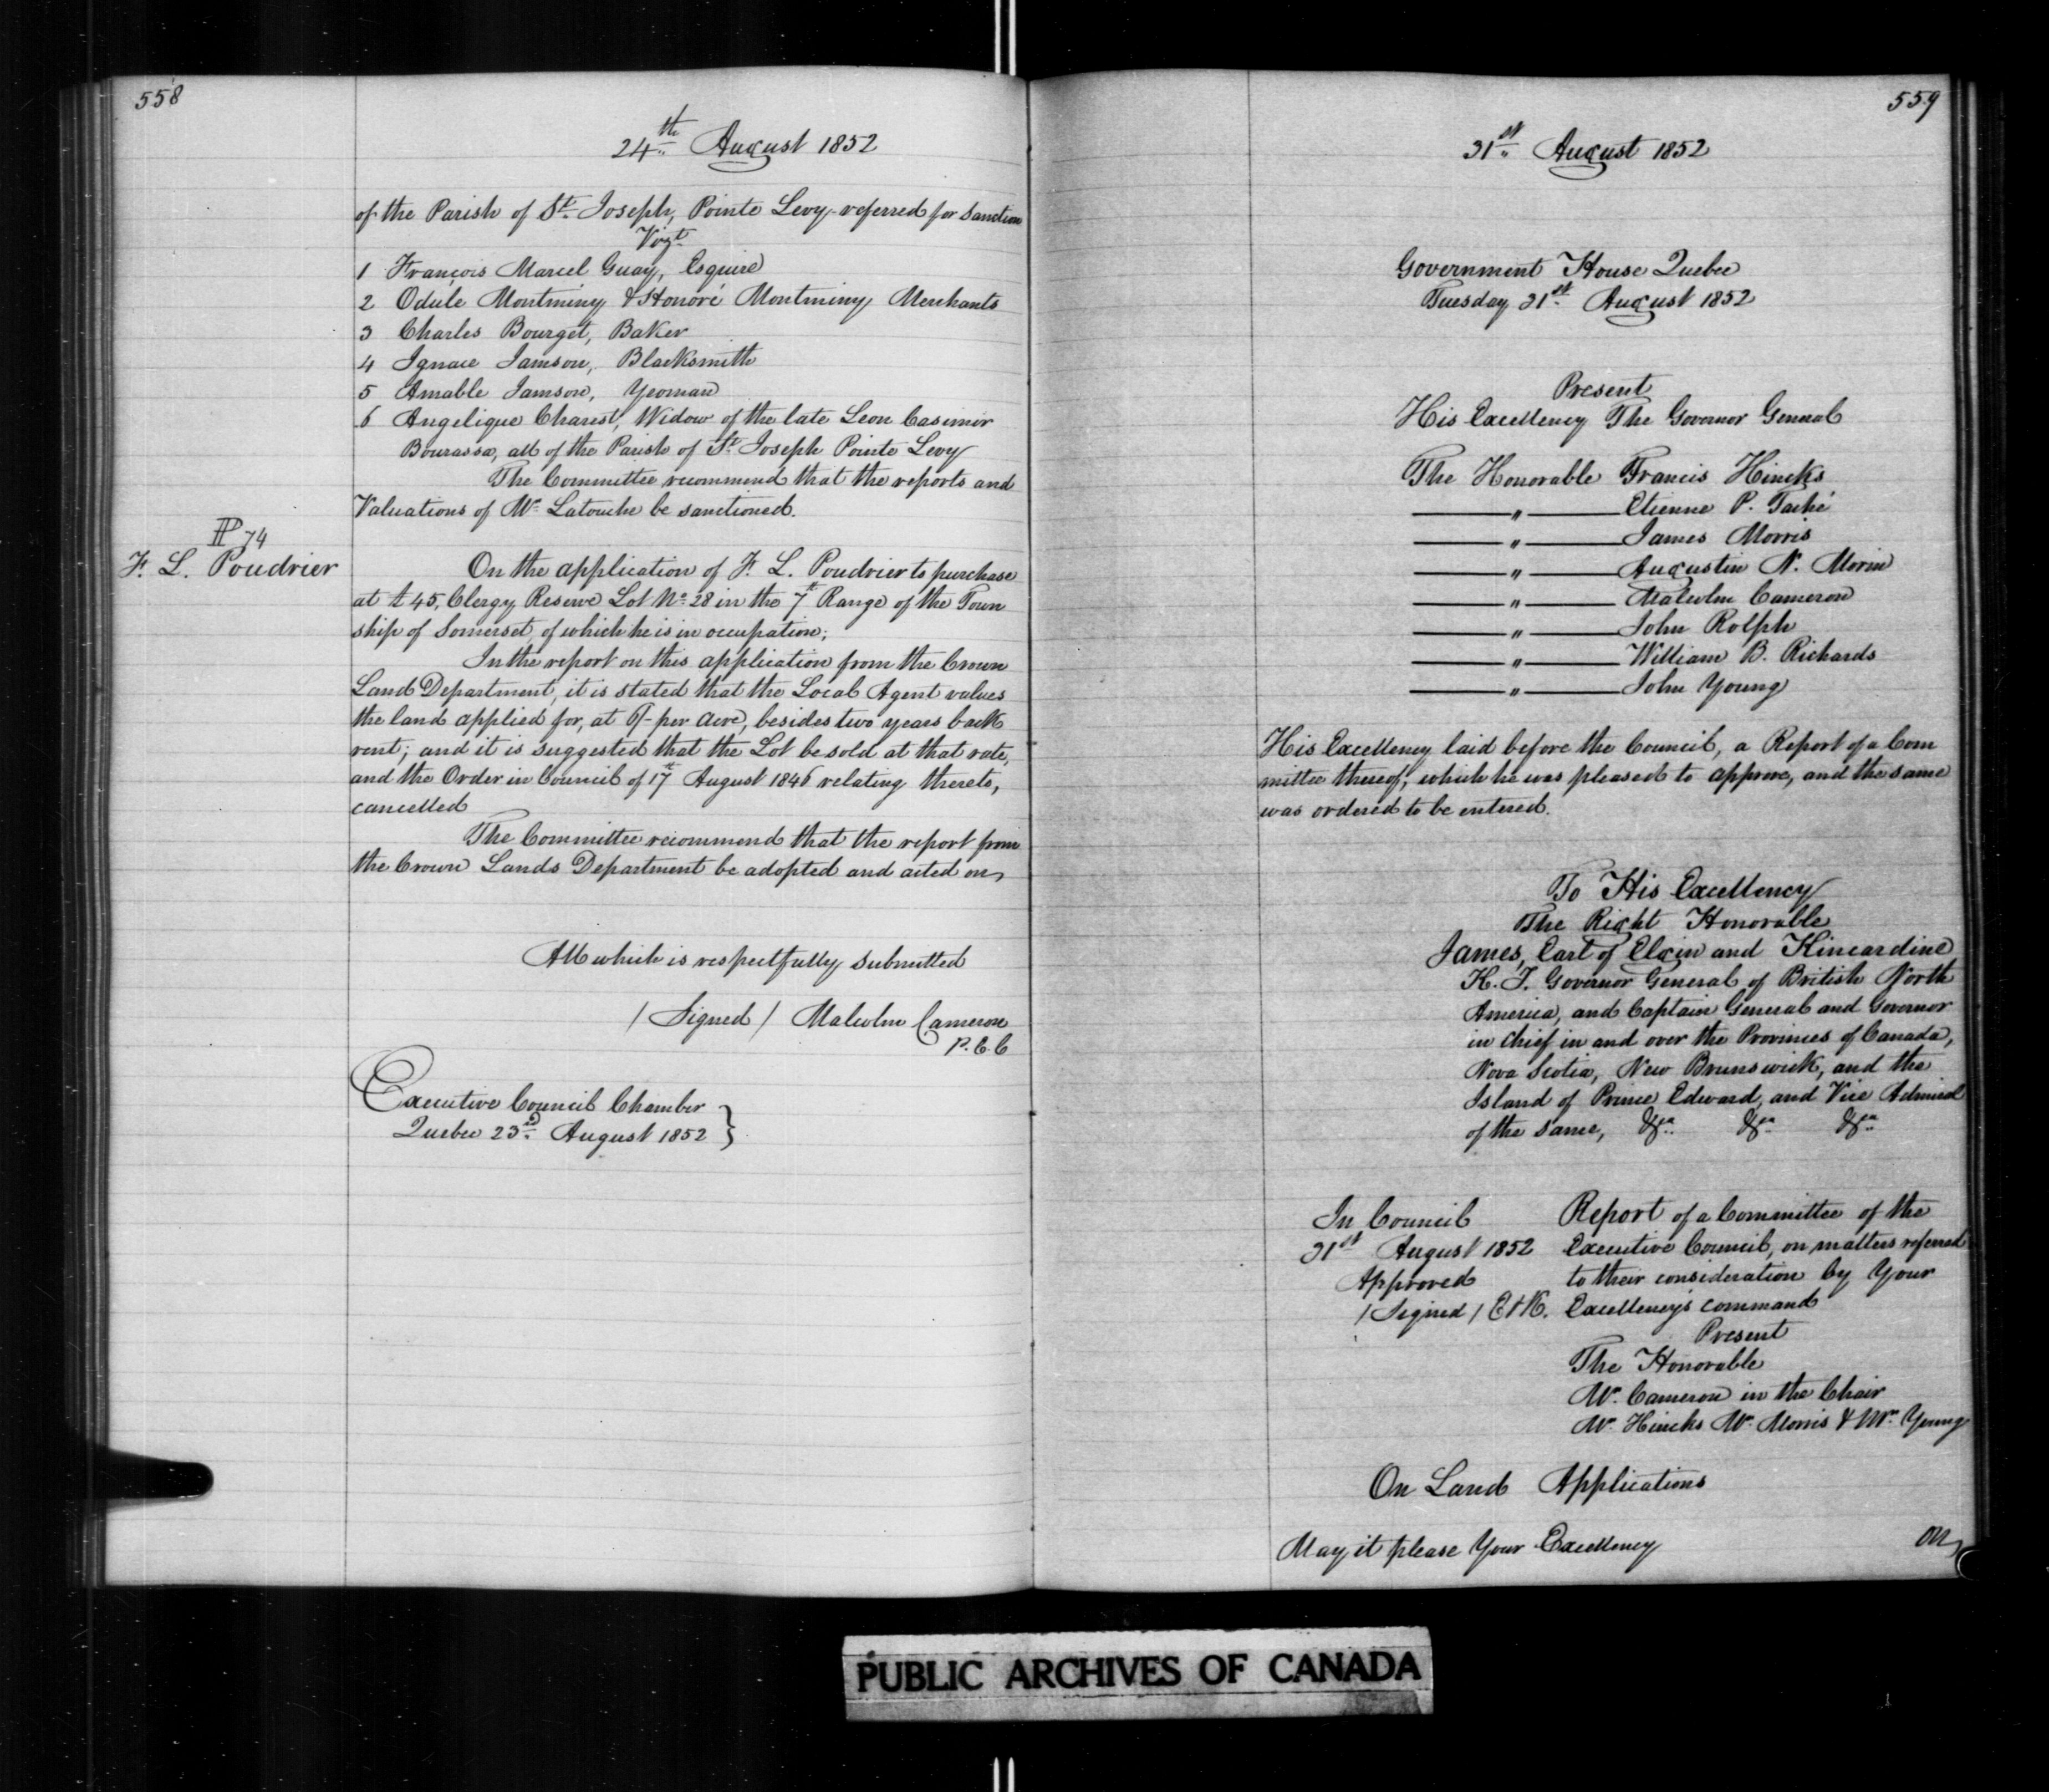 558
24th August 1852
of the Parish of St Joseph, Pointe Levy, referred for sanction
Vizt
1 François Marcel Guay, Esquire
2 Odule Montminy & Honoré Montminy Merchants
3 Charles Bourget, Baker
4 Ignace Jamson, Blacksmith
5 Amable Jamson, Yeoman
6 Angelique Charest, Widow of the late Leon Casimir
Bourassa, all of the Parish of St Joseph Pointe Levy
The Committee recommend that the reports and
Valuations of Mr Latouche be sanctioned.
P 74
F. L. Poudrier
On the application of F. L. Poudrier to purchase
at £45, Clergy Reserve Lot No 28 in the 7th Range of the Town
ship of Somerset, of which he is in occupation;
In the report on this application from the Crown
Land Department, it is stated that the Local Agent values
the land applied for, at 6/- per acre, besides two years back
rent; and it is suggested that the Lot be sold at that rate,
and the Order in Council of 17th August 1846 relating thereto,
cancelled
The Committee recommend that the report from
the Crown Lands Department be adopted and acted on
All which is respectfully submitted
/ Signed / Malcolm Cameron
P. C. C
Executive Council Chamber
Quebec 23rd August 1852 }
559
31st August 1852
Government House Quebec
Tuesday 31st August 1852
Present
His Excellency The Governor General
The Honorable Francis Hincks
" Etienne P. Taché
" James Morris
" Augustin N. Morin
" Malcolm Cameron
" John Rolph
" William B. Richards
" John Young
His Excellency laid before the Council, a Report of a Com
mittee thereof, which he was pleased to approve, and the same
was ordered to be entered.
To His Excellency
The Right Honorable
James, Earl of Elgin and Kincardine
K. T. Governor General of British North
America, and Captain General and Governor
in chief in and over the Provinces of Canada,
Nova Scotia, New Brunswick, and the
Island of Prince Edward, and Vice Admiral
of the same, &ca &ca &ca
In Council
31st August 1852
Approved
/ Signed / E & K.
Report of a Committee of the
Executive Council, on matters referred
to their consideration by Your
Excellency's command
Present
The Honorable
Mr. Cameron in the Chair
Mr. Hincks Mr. Morris & Mr. Young
On Land Applications
May it please Your Excellency
On
PUBLIC ARCHIVES OF CANADA